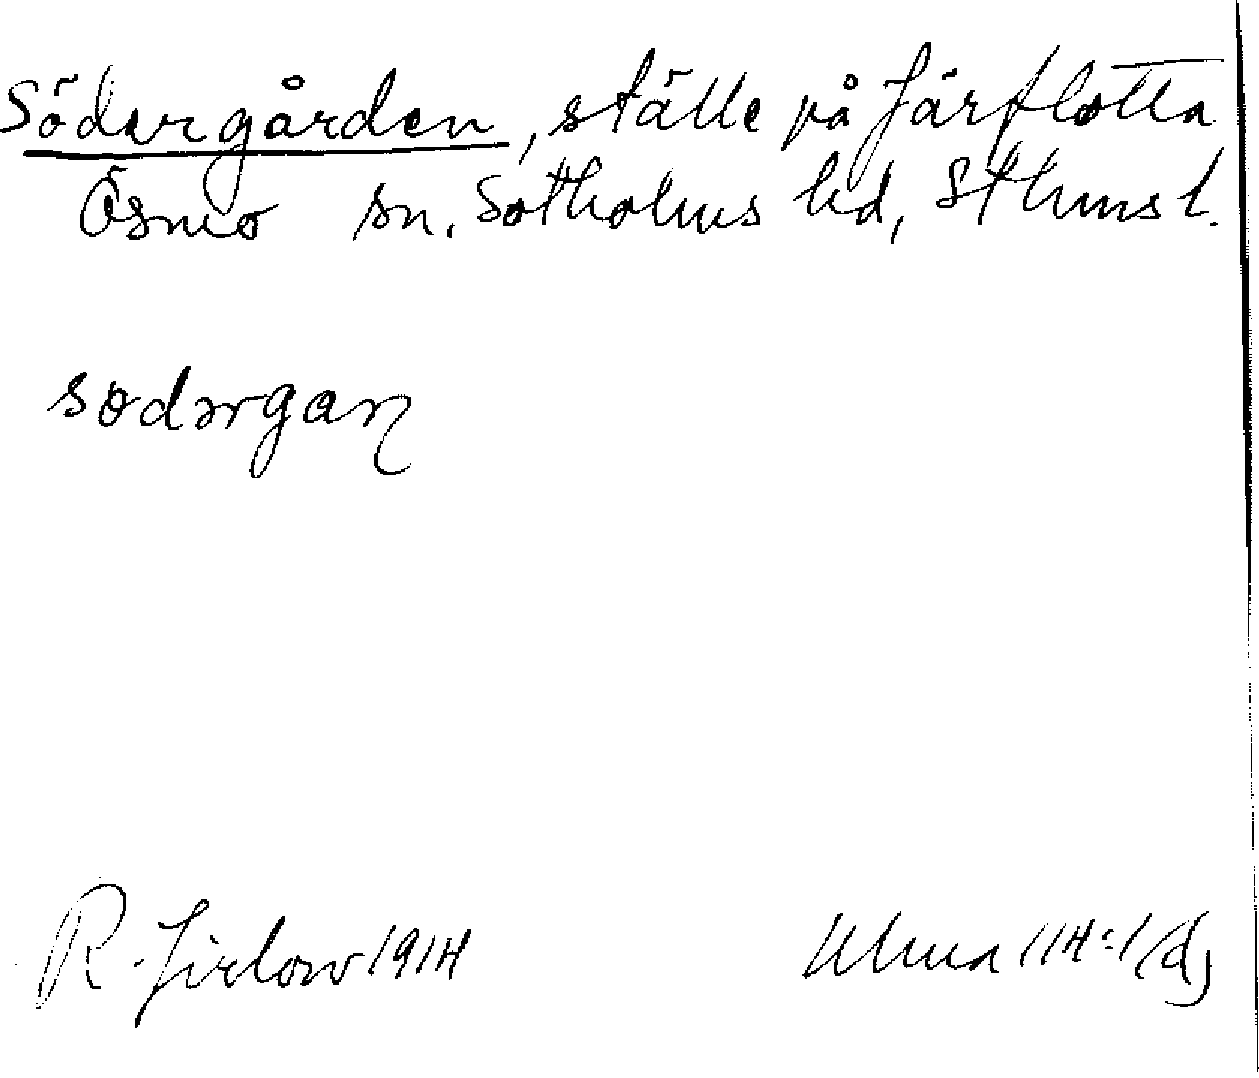 Södergården, ställe på Järflotta
Ösmo sn. Sotholms hd, Sthms l.
södərgaɳ
R. Jirlow 1914
Ulma 114:1/dj